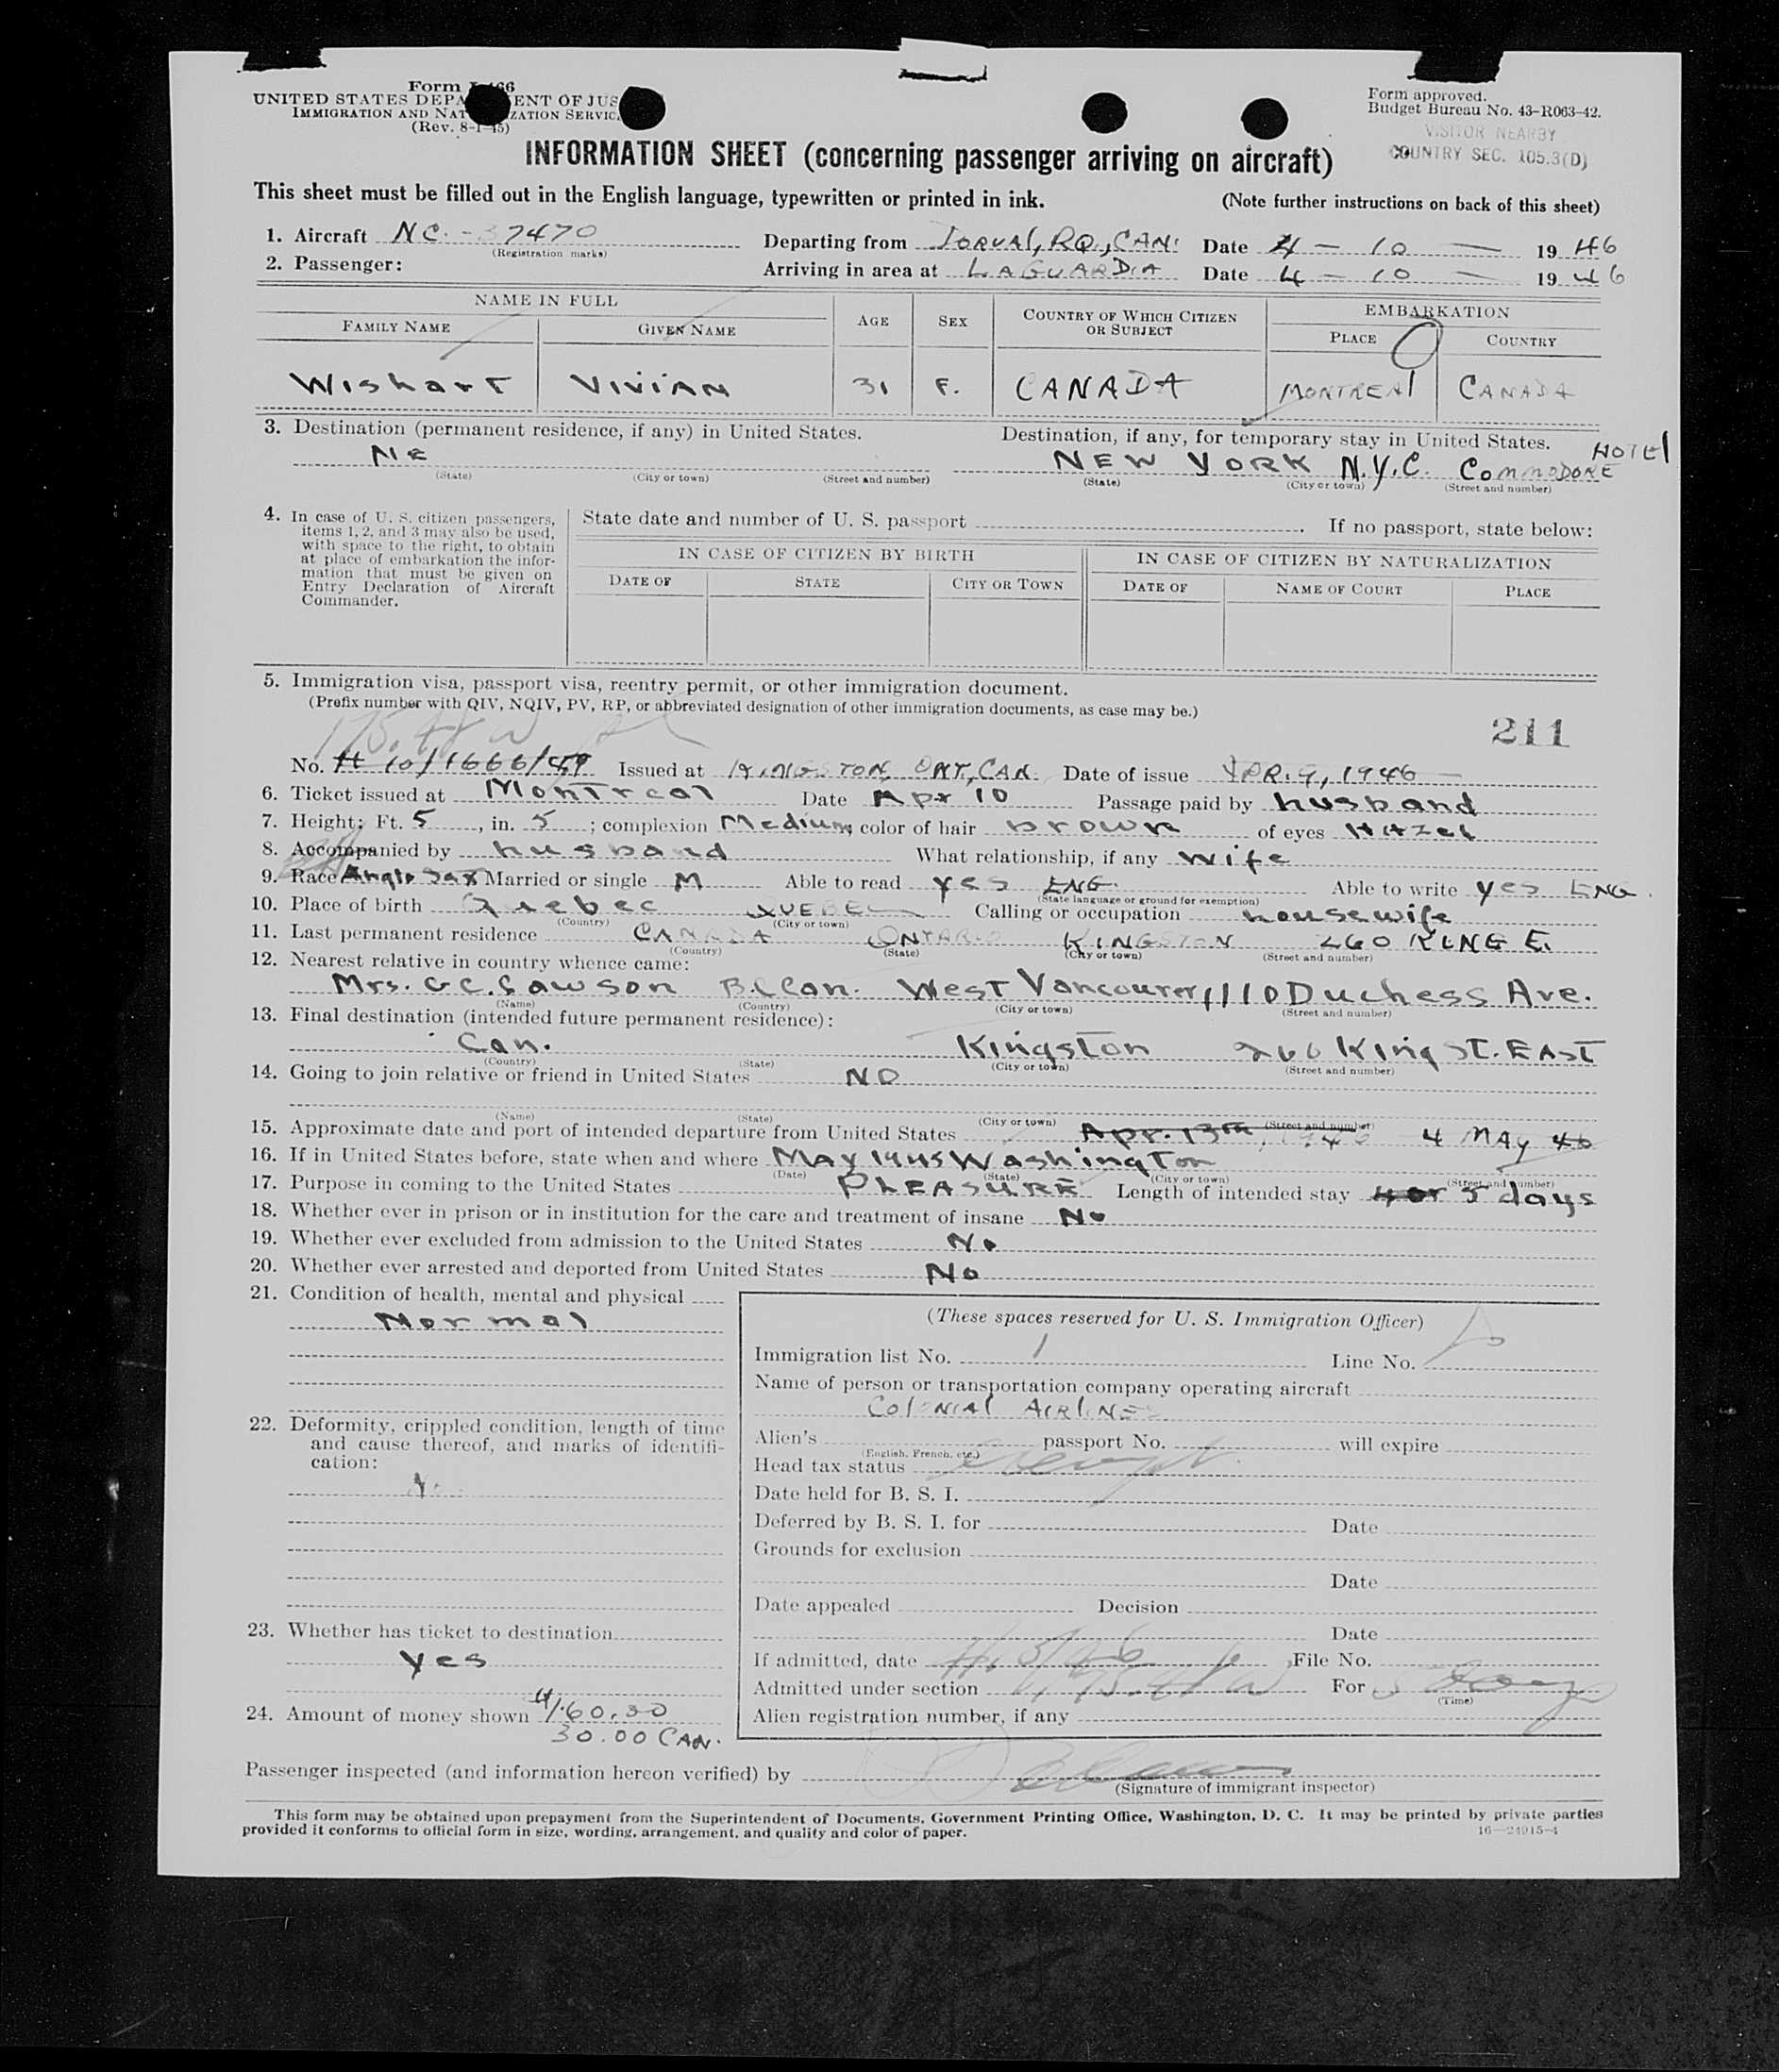 Form I-466
UNITED STATES DEPARTMENT OF JUSTICE
IMMIGRATION AND NATURALIZATION SERVICE
(Rev. 8-1-45)
Form approved.
Budget Bureau No. 43-R063-42.
VISITOR NEARBY
COUNTRY SEC. 105.3(D)
INFORMATION SHEET (concerning passenger arriving on aircraft)
This sheet must be filled out in the English language, typewritten or printed in ink. (Note further instructions on back of this sheet)
1. Aircraft NC - 37470 Departing from DORVAL, P.Q., CAN. Date 4 - 10 - 19 46
(Registration marks)
2. Passenger: Arriving in area at LAGUARDIA Date 4 - 10 - 19 46
NAME IN FULL EMBARKATION
FAMILY NAME GIVEN NAME AGE SEX COUNTRY OF WHICH CITIZEN OR SUBJECT PLACE COUNTRY
Wishart VIVIAN 31 F. CANADA MONTREAL CANADA
3. Destination (permanent residence, if any) in United States. Destination, if any, for temporary stay in United States. HOTEL
NEW YORK N.Y.C. COMMODORE
(State) (City or town) (Street and number) (State) (City or town) (Street and number)
4. In case of U. S. citizen passengers, items 1, 2, and 3 may also be used, with space to the right, to obtain at place of embarkation the information that must be given on Entry Declaration of Aircraft Commander.
State date and number of U. S. passport . If no passport, state below:
IN CASE OF CITIZEN BY BIRTH IN CASE OF CITIZEN BY NATURALIZATION
DATE OF STATE CITY OR TOWN DATE OF NAME OF COURT PLACE
5. Immigration visa, passport visa, reentry permit, or other immigration document.
(Prefix number with QIV, NQIV, PV, RP, or abbreviated designation of other immigration documents, as case may be.)
211
No. H 10/1666/59 Issued at KINGSTON, ONT, CAN. Date of issue APR. 9, 1946
6. Ticket issued at Montreal Date Apr 10 Passage paid by husband
7. Height: Ft. 5, in. 5; complexion Medium; color of hair brown of eyes Hazel
8. Accompanied by husband What relationship, if any wife
9. Race Anglo Sax Married or single M Able to read yes ENG. Able to write yes ENG.
(State language or ground for exemption)
10. Place of birth Quebec QUEBEC Calling or occupation housewife
(Country) (City or town)
11. Last permanent residence CANADA ONTARIO KINGSTON 260 KING E.
(Country) (State) (City or town) (Street and number)
12. Nearest relative in country whence came:
Mrs. G C. Sawson B.C Can. West Vancouver, 1110 Duchess Ave.
(Name) (Country) (City or town) (Street and number)
13. Final destination (intended future permanent residence):
Can. Kingston 260 King ST. EAST
(Country) (State) (City or town) (Street and number)
14. Going to join relative or friend in United States NO
(Name) (State) (City or town) (Street and number)
15. Approximate date and port of intended departure from United States Apr. 13th, 1946 4 MAY 46
16. If in United States before, state when and where May 1945 Washington
(Date) (State) (City or town) (Street and number)
17. Purpose in coming to the United States PLEASURE Length of intended stay 4 or 5 days
18. Whether ever in prison or in institution for the care and treatment of insane No
19. Whether ever excluded from admission to the United States No
20. Whether ever arrested and deported from United States No
21. Condition of health, mental and physical
Normal
22. Deformity, crippled condition, length of time and cause thereof, and marks of identification:
23. Whether has ticket to destination
Yes
24. Amount of money shown 160.30
30.00 CAN.
(These spaces reserved for U. S. Immigration Officer)
Immigration list No. 1 Line No.
Name of person or transportation company operating aircraft
COLONIAL AIRLINES
Alien's passport No. will expire
(English, French, etc.)
Head tax status Exempt
Date held for B. S. I.
Deferred by B. S. I. for Date
Grounds for exclusion
Date
Date appealed Decision
Date
If admitted, date File No.
Admitted under section For
(Time)
Alien registration number, if any
Passenger inspected (and information hereon verified) by
(Signature of immigrant inspector)
This form may be obtained upon prepayment from the Superintendent of Documents, Government Printing Office, Washington, D. C. It may be printed by private parties
provided it conforms to official form in size, wording, arrangement, and quality and color of paper. 16—24915-4